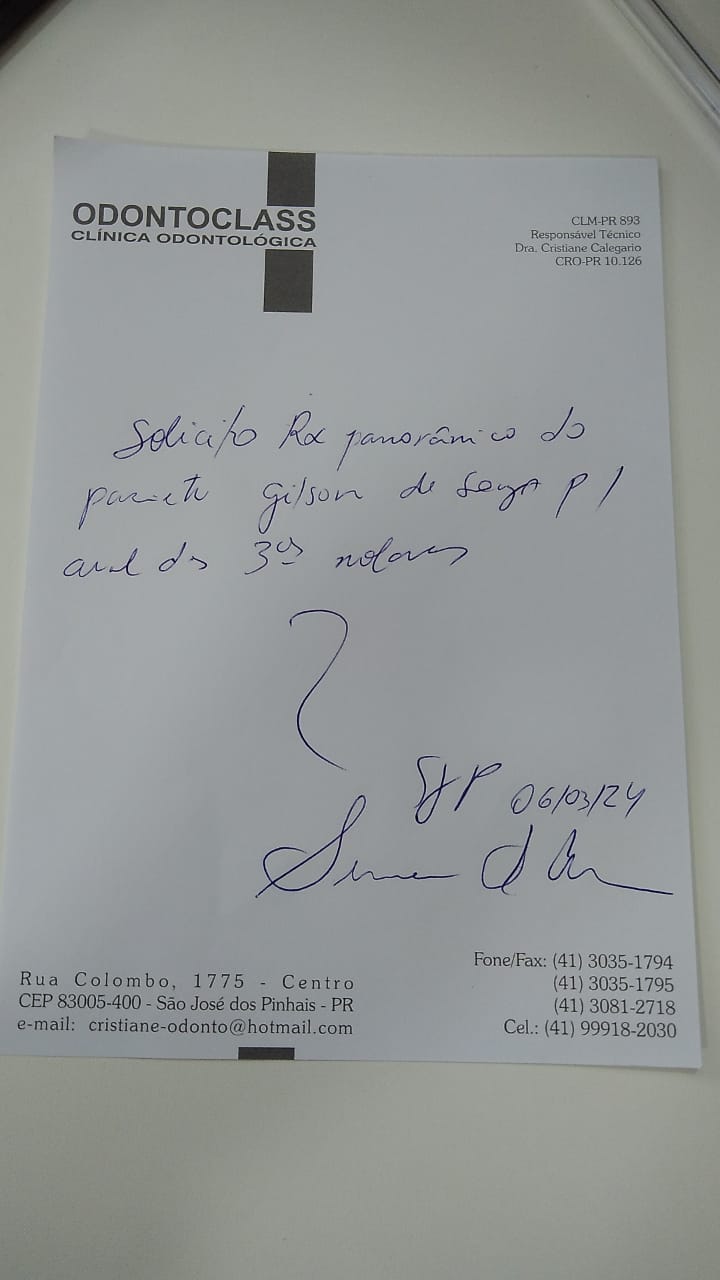 ODONTOCLASS
CLÍNICA ODONTOLÓGICA
CLM-PR 893
Responsável Técnico
Dra. Cristiane Calegario
CRO-PR 10.126
Solicito Rx panorâmico do
paciente Gilson de Souza p/
aval dos 3ºs molares
SJP 06/03/24
Rua Colombo, 1775 - Centro
CEP 83005-400 - São José dos Pinhais - PR
e-mail: cristiane-odonto@hotmail.com
Fone/Fax: (41) 3035-1794
(41) 3035-1795
(41) 3081-2718
Cel.: (41) 99918-2030